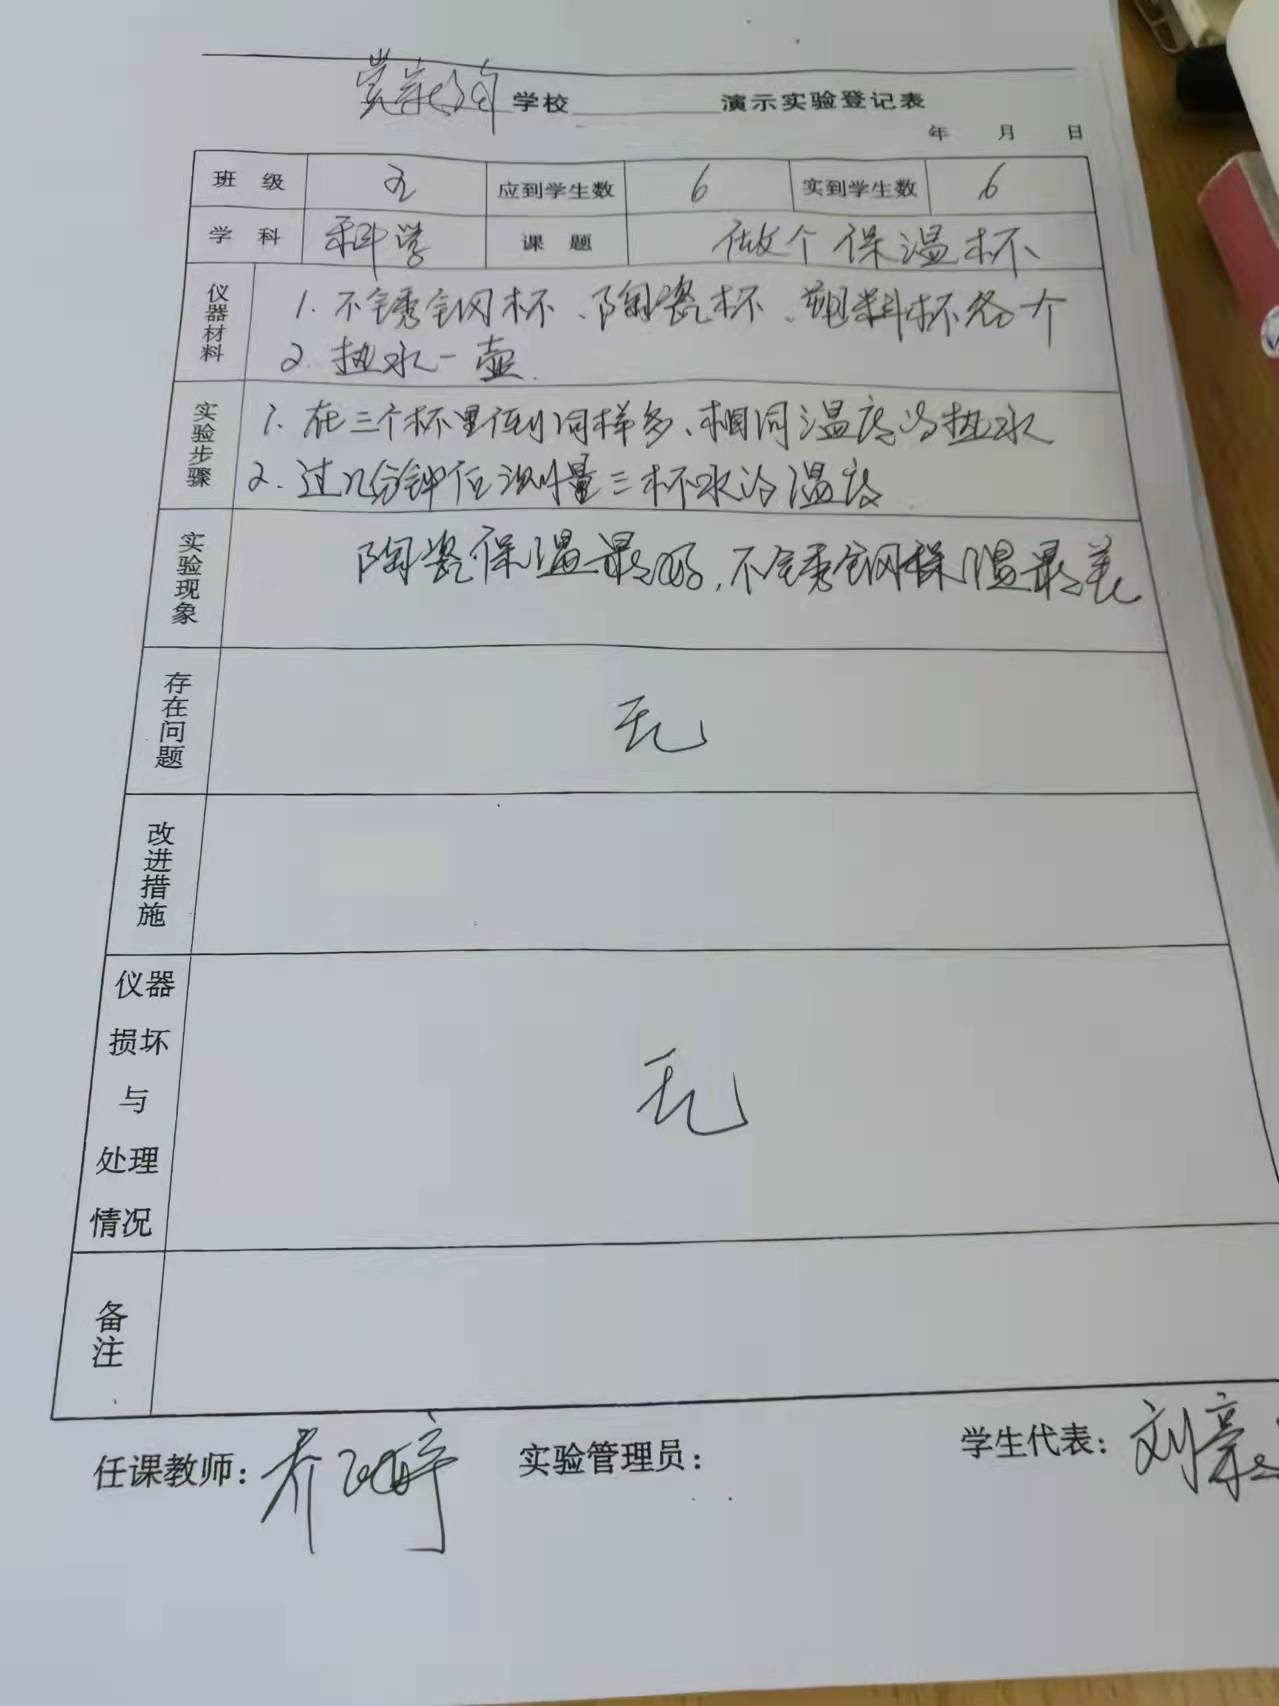 学校 演示实验登记表
年 月 日
班 级 五 应到学生数 6 实到学生数 6
学 科 科学 课 题 做个保温杯
仪器材料
1. 不锈钢杯、陶瓷杯、塑料杯各一个
2. 热水一壶.
实验步骤
1. 在三个杯里倒同样多、相同温度的热水
2. 过几分钟后测量三杯水的温度
实验现象
陶瓷保温最好,不锈钢保温最差
存在问题
无
改进措施
仪器
损坏
与
处理
情况
无
备注
任课教师: 乔 实验管理员: 学生代表: 刘豪